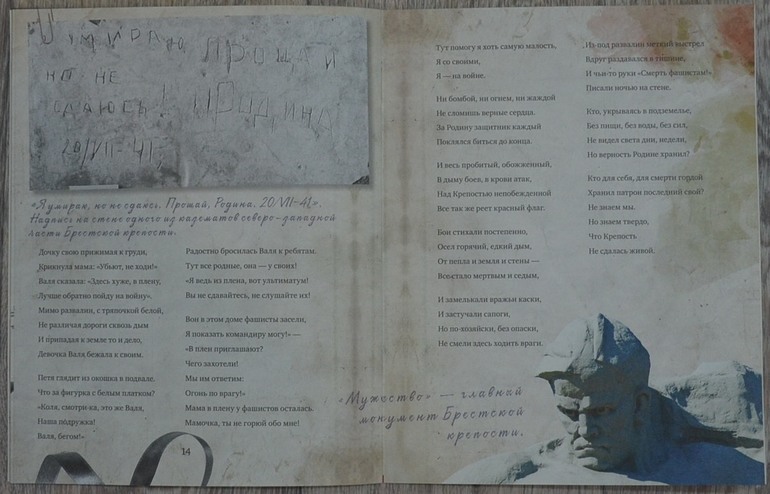 УМИРАЮ, ПРОЩАЙ
НО НЕ
СДАЮСЬ! РОДИНА
20/VII-41,
«Я умираю, но не сдаюсь. Прощай, Родина. 20/VII-41».
Надпись на стене одного из казематов северо-западной
части Брестской крепости.
Дочку свою прижимая к груди,
Крикнула мама: «Убьют, не ходи!»
Валя сказала: «Здесь хуже, в плену,
Лучше обратно пойду на войну».
Мимо развалин, с тряпочкой белой,
Не различая дороги сквозь дым
И припадая к земле то и дело,
Девочка Валя бежала к своим.
Петя глядит из окошка в подвале.
Что за фигурка с белым платком?
«Коля, смотри-ка, это же Валя,
Наша подружка!
Валя, бегом!»
Радостно бросилась Валя к ребятам.
Тут все родные, она — у своих!
«Я ведь из плена, вот ультиматум!
Вы не сдавайтесь, не слушайте их!
Вон в этом доме фашисты засели,
Я показать командиру могу!» —
«В плен приглашают?
Чего захотели!
Мы им ответим:
Огонь по врагу!»
Мама в плену у фашистов осталась.
Мамочка, ты не горюй обо мне!
14
Тут помогу я хоть самую малость,
Я со своими,
Я — на войне.
Ни бомбой, ни огнем, ни жаждой
Не сломишь верные сердца.
За Родину защитник каждый
Поклялся биться до конца.
И весь пробитый, обожженный,
В дыму боев, в крови атак,
Над Крепостью непобежденной
Все так же реет красный флаг.
Бои стихали постепенно,
Осел горячий, едкий дым,
От пепла и земля и стены —
Все стало мертвым и седым,
И замелькали вражьи каски,
И застучали сапоги,
Но по-хозяйски, без опаски,
Не смели здесь ходить враги.
Из-под развалин меткий выстрел
Вдруг раздавался в тишине,
И чьи-то руки «Смерть фашистам!»
Писали ночью на стене.
Кто, укрываясь в подземелье,
Без пищи, без воды, без сил,
Не видел света дни, недели,
Но верность Родине хранил?
Кто для себя, для смерти гордой
Хранил патрон последний свой?
Не знаем мы.
Но знаем твердо,
Что Крепость
Не сдалась живой.
«Мужество» — главный
монумент Брестской
крепости.